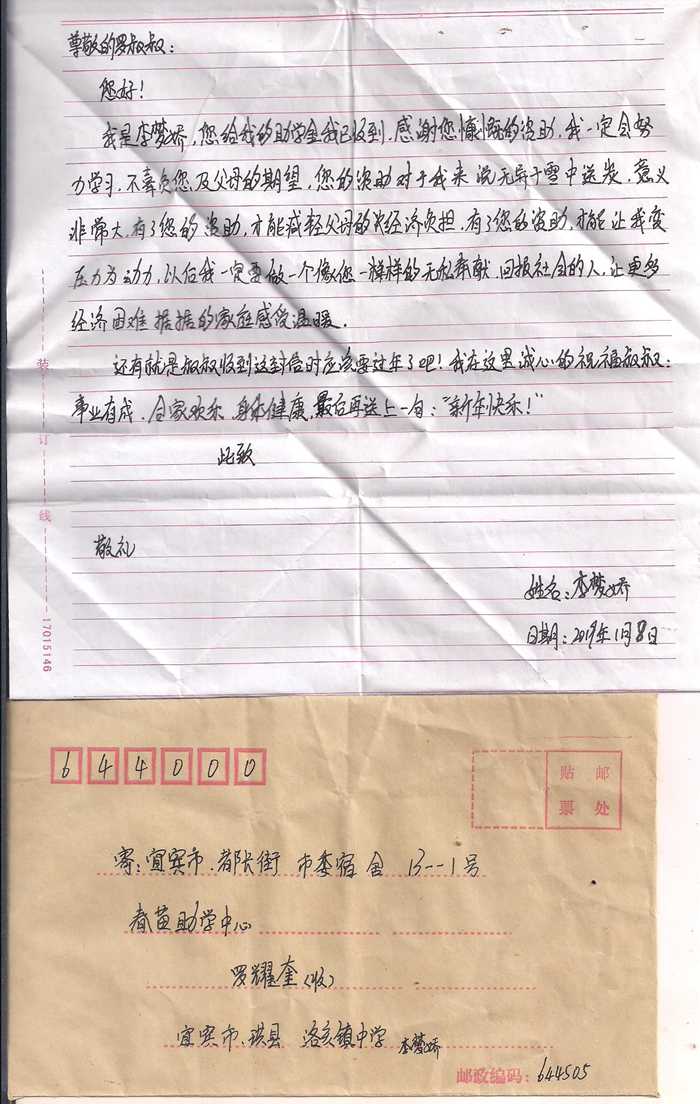 尊敬的罗叔叔:
您好!
我是李梦娇,您给我的助学金我已收到.感谢您慷慨的资助,我一定会努
力学习.不辜负您及父母的期望,您的资助对于我来说无异于雪中送炭.意义
非常大.有了您的资助,才能减轻父母的经济负担.有了您的资助,才能让我变
压力为动力,以后我一定要做一个像您一样样的无私奉献.回报社会的人,让更多
经济困难 据据的家庭感受温暖.
还有就是叔叔收到这封信时应该要过年了吧!我在这里诚心的祝福叔叔:
事业有成.合家欢乐.身体健康,最后再送上一句:"新年快乐!"
此致
敬礼
姓名:李梦娇
日期:2019年1月8日
装订线
17015146
644000
贴邮
票处
寄:宜宾市.都长街 市委宿舍 13--1号
春苗助学中心
罗耀奎(收)
宜宾市.珙县 洛亥镇中学 李梦娇
邮政编码:644505